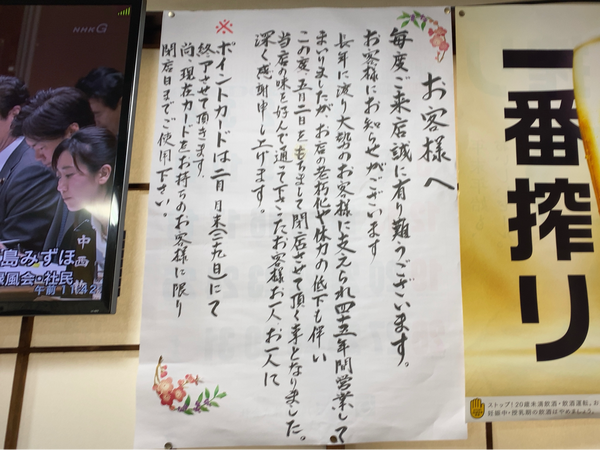 お客様へ
毎度ご来店誠に有り難うございます。
お客様にお知らせがございます
長年に渡り大勢のお客様に支えられ四十五年間営業して
まいりましたが、お店の老朽化や体力の低下も伴い
この度、五月二日をもちまして閉店させて頂く事となりました。
当店の味を好んで通って下さったお客様お一人お一人に
深く感謝申し上げます。
※
ポイントカードは二月月末(二九日)にて
終了させて頂きます
尚、現在カードをお持ちのお客様に限り
閉店日までご使用下さい。
NHK G
島みずほ
風会・社民
午前11:42
中西
一番搾り
ストップ!20歳未満飲酒・飲酒運転。お
妊娠中・授乳期の飲酒はやめましょう。